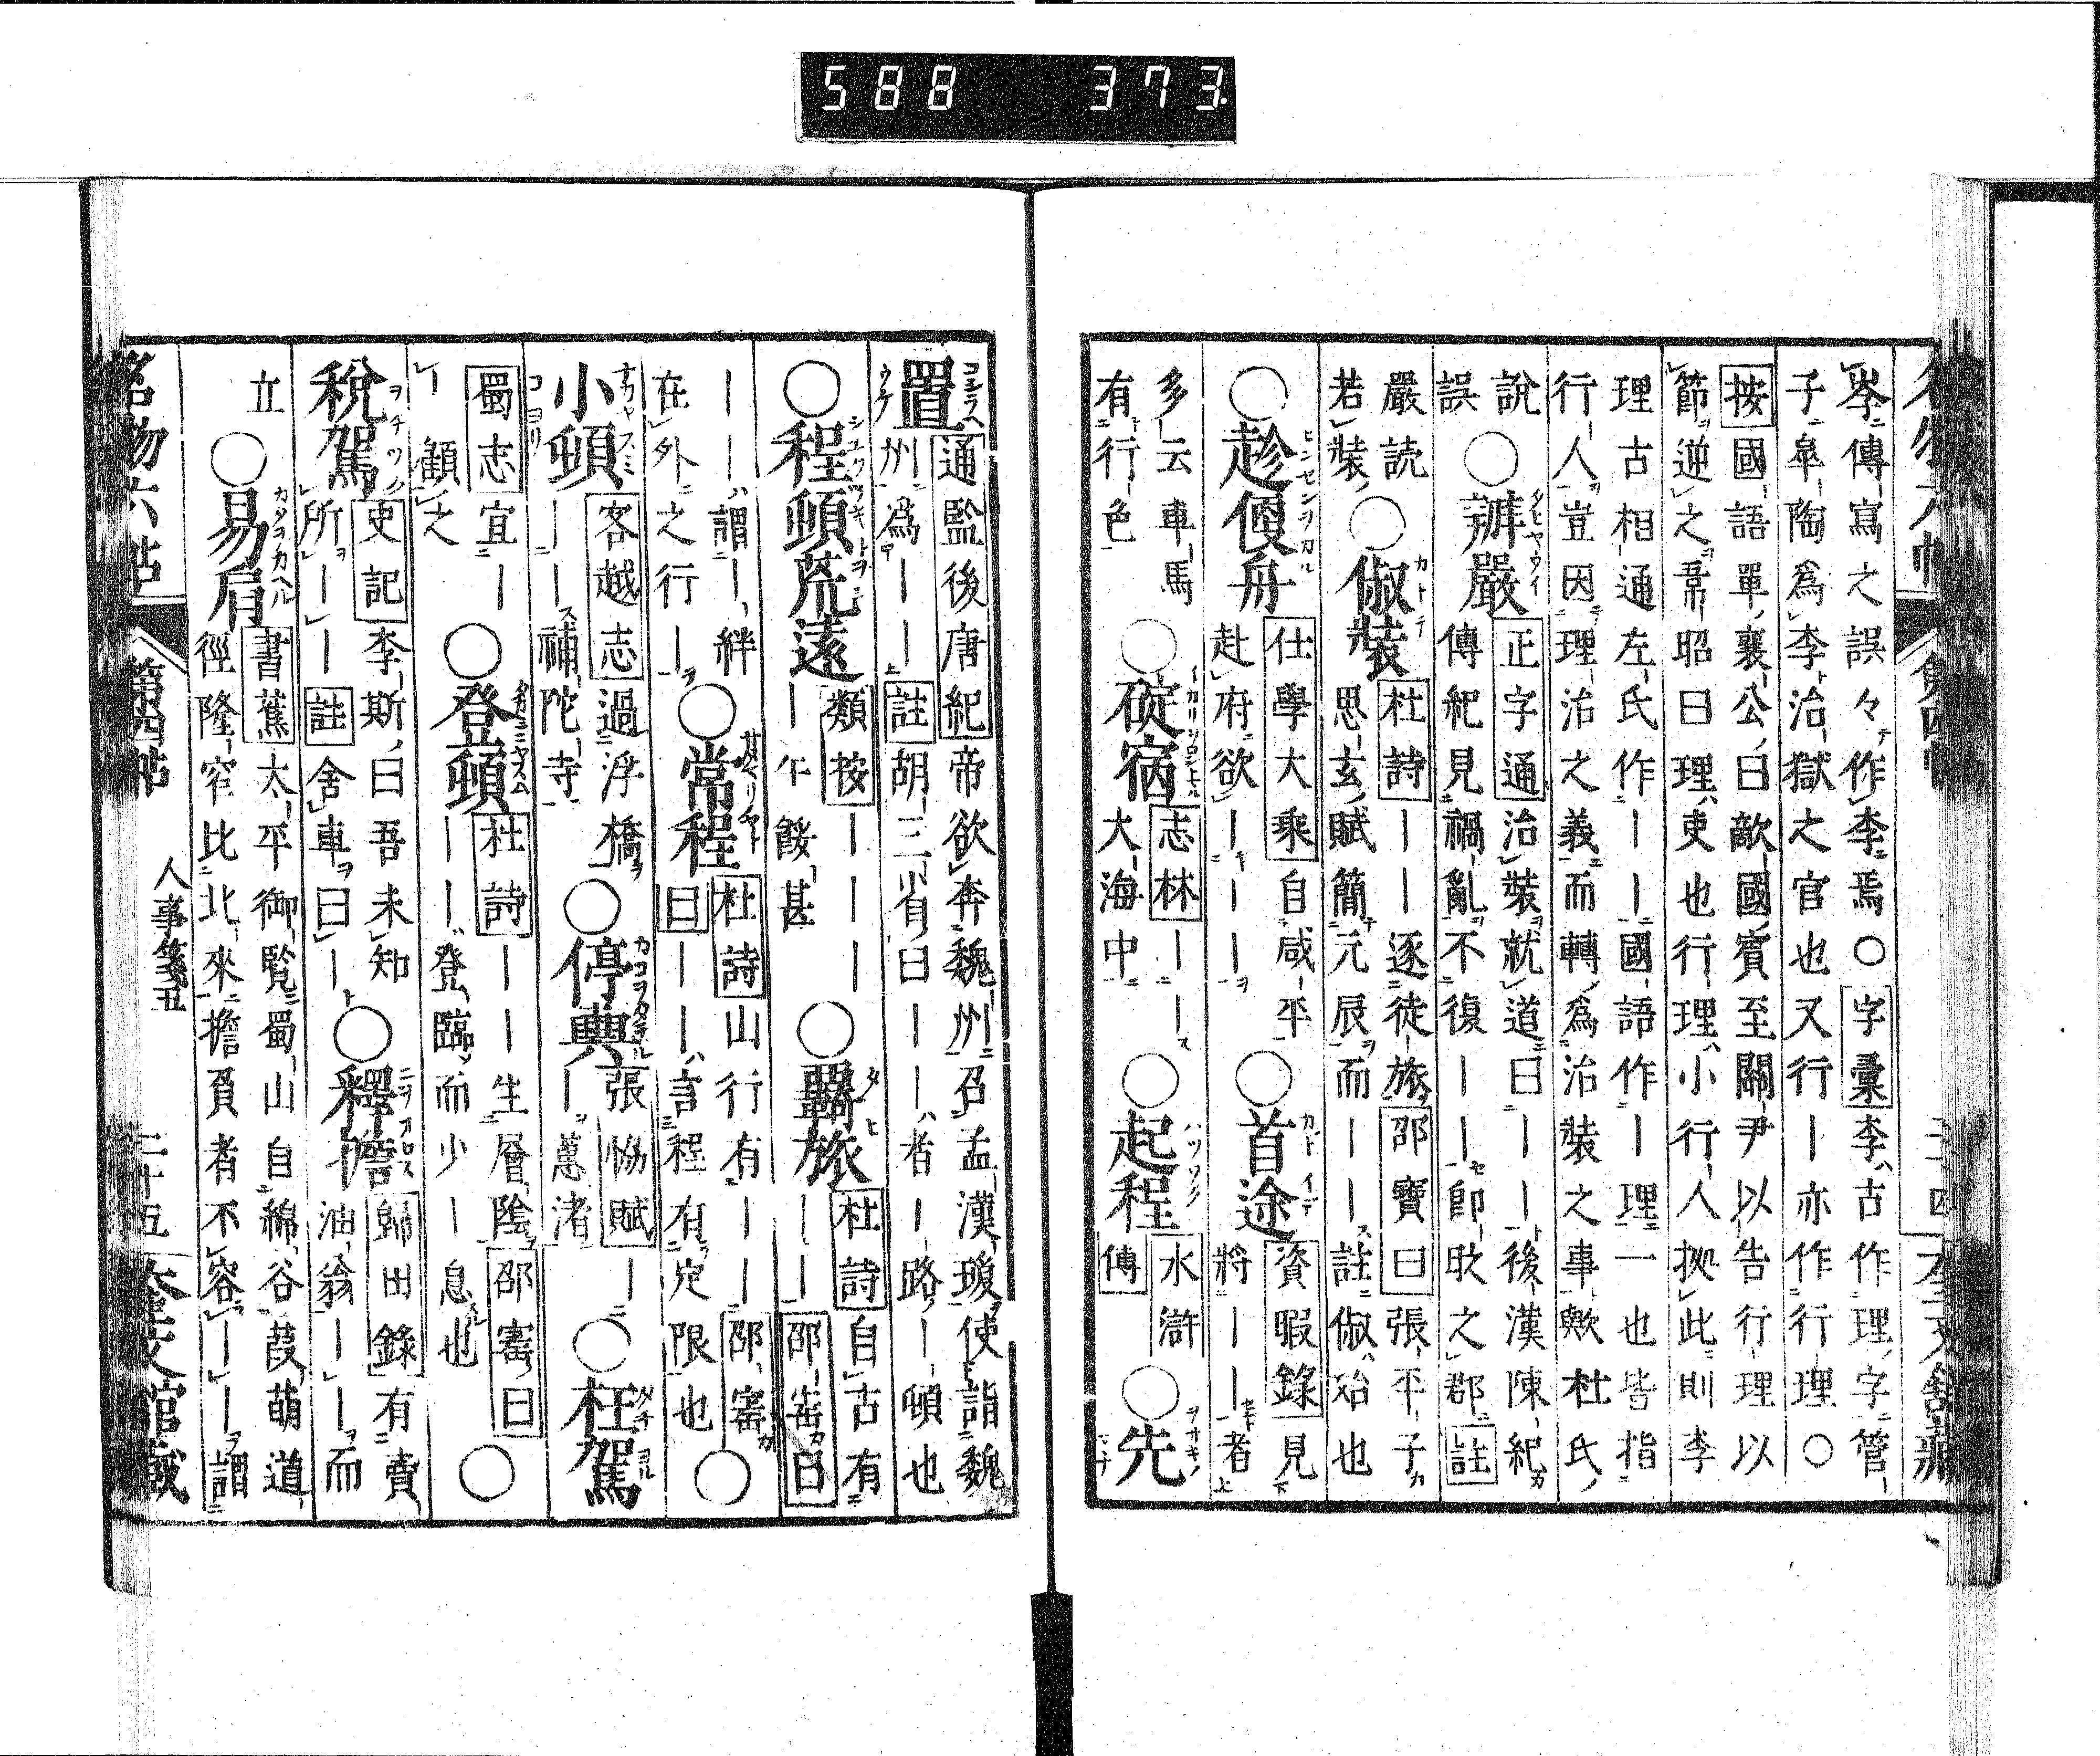 588 373.
岑傳寫之誤々作李焉○字彙李古作理字管
子皐陶爲李治獄之官也又行｜亦作行理○
按國語單襄公曰敵國賓至關尹以告行理以
節逆之韋昭曰理吏也行理小行人據此則李
理古相通左氏作｜｜國語作｜理一也皆指
行人豈因理治之義而轉爲治裝之事歟杜氏
說○辦嚴正字通治裝就道曰｜｜後漢陳紀
誤 傳紀見禍亂不復｜｜卽時之郡註
嚴読○俶裝杜詩｜｜逐徒旅邵寶曰張平子
若裝 思玄賦簡元辰而｜｜註俶始也
○趁便舟仕學大乘自咸平○首途資暇錄見
赴府欲｜｜｜ 將｜｜者
多云車馬○碇宿志林｜｜○起程水滸○先
有行色 大海中 傳
置通監後唐紀帝欲奔魏州召孟漢瓊使詣魏
州爲｜｜註胡三省曰｜｜者｜路｜頓也
○程頓荒遠類按｜｜｜○羈旅杜詩自古有
｜午餒甚 ｜｜邵寶曰
｜｜謂｜絆○常程杜詩山行有｜｜邵寶○
在外之行｜ 曰｜｜言程有定限也
小頓客越志過浮橋○停輿張協賦｜○枉駕
｜｜補陀寺 ｜蕙渚
蜀志宜｜○登頓杜詩｜｜生層陰邵寶曰○
｜顧之 ｜｜登臨而少｜息也
稅駕史記李斯曰吾未知○釋擔歸田錄有賣
所｜｜註舍車曰｜ 油翁｜｜而
立○易肩書蕉太平御覽蜀山自綿谷葭萌道
徑隆窄比北來擔負者不容｜｜謂
名物六帖 第四帖 人事箋五 二十五 奎文館藏